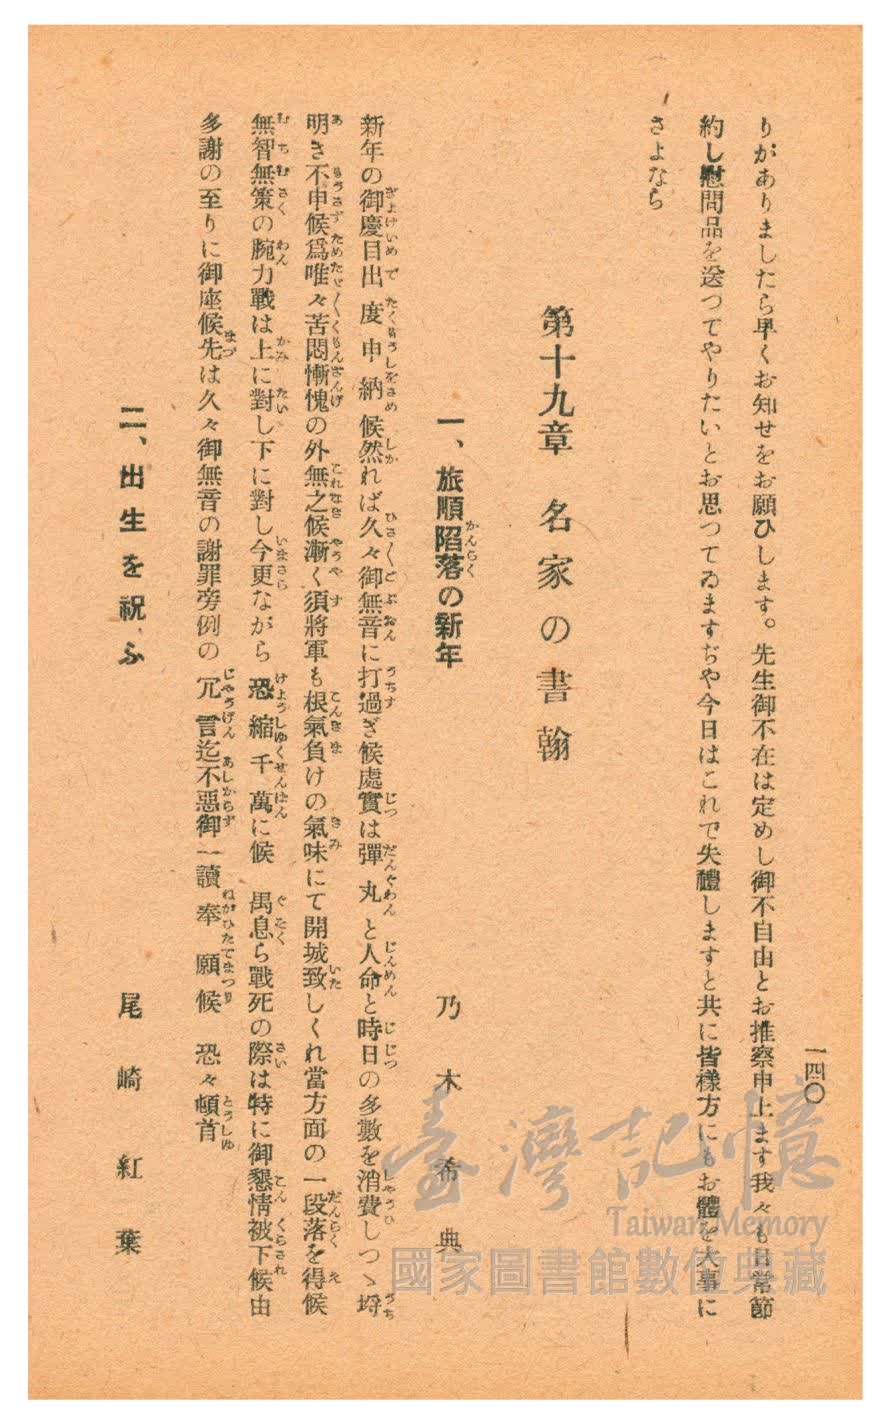 一四〇
りがありましたら早くお知せをお願ひします。先生御不在は定めし御不自由とお推察申上ます我々も日常節
約し慰問品を送つてやりたいとお思つてゐますぢや今日はこれで失禮しますと共に皆樣方にもお體を大事に
さよなら
第十九章 名家の書翰
一、旅順陷落の新年 乃木希典
新年の御慶目出度申納候然れば久々御無音に打過ぎ候處實は彈丸と人命と時日の多數を消費しつゝ埒
明き不申候爲唯々苦悶慚愧の外無之候漸く須將軍も根氣負けの氣味にて開城致しくれ當方面の一段落を得候
無智無策の腕力戰は上に對し下に對し今更ながら恐縮千萬に候 豚息ら戰死の際は特に御懇情被下候由
多謝の至りに御座候先は久々御無音の謝罪旁例の冗言迄不惡御一讀奉願候 恐々頓首
二、出生を祝ふ 尾崎紅葉
臺灣記憶
Taiwan Memory
國家圖書館數位典藏